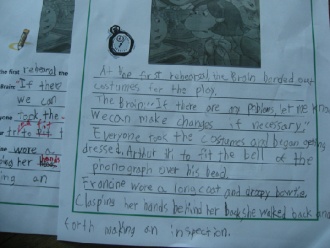 the first rehearsal the
Brain: If there
we can
took the
try to fit
wore a
her hands
ing an
At the first rehearsal the Brain handed out
costumes for the play.
The Brain: If there are any problems, let me know
we can make changes if necessary."
Everyone got the costumes and began getting
dressed. Arthur to fit the bell of the
phonograph over his head.
Francine wore a long coat and bowtie.
Clasping her hands behind her back, she walked back and
forth making an inspection.